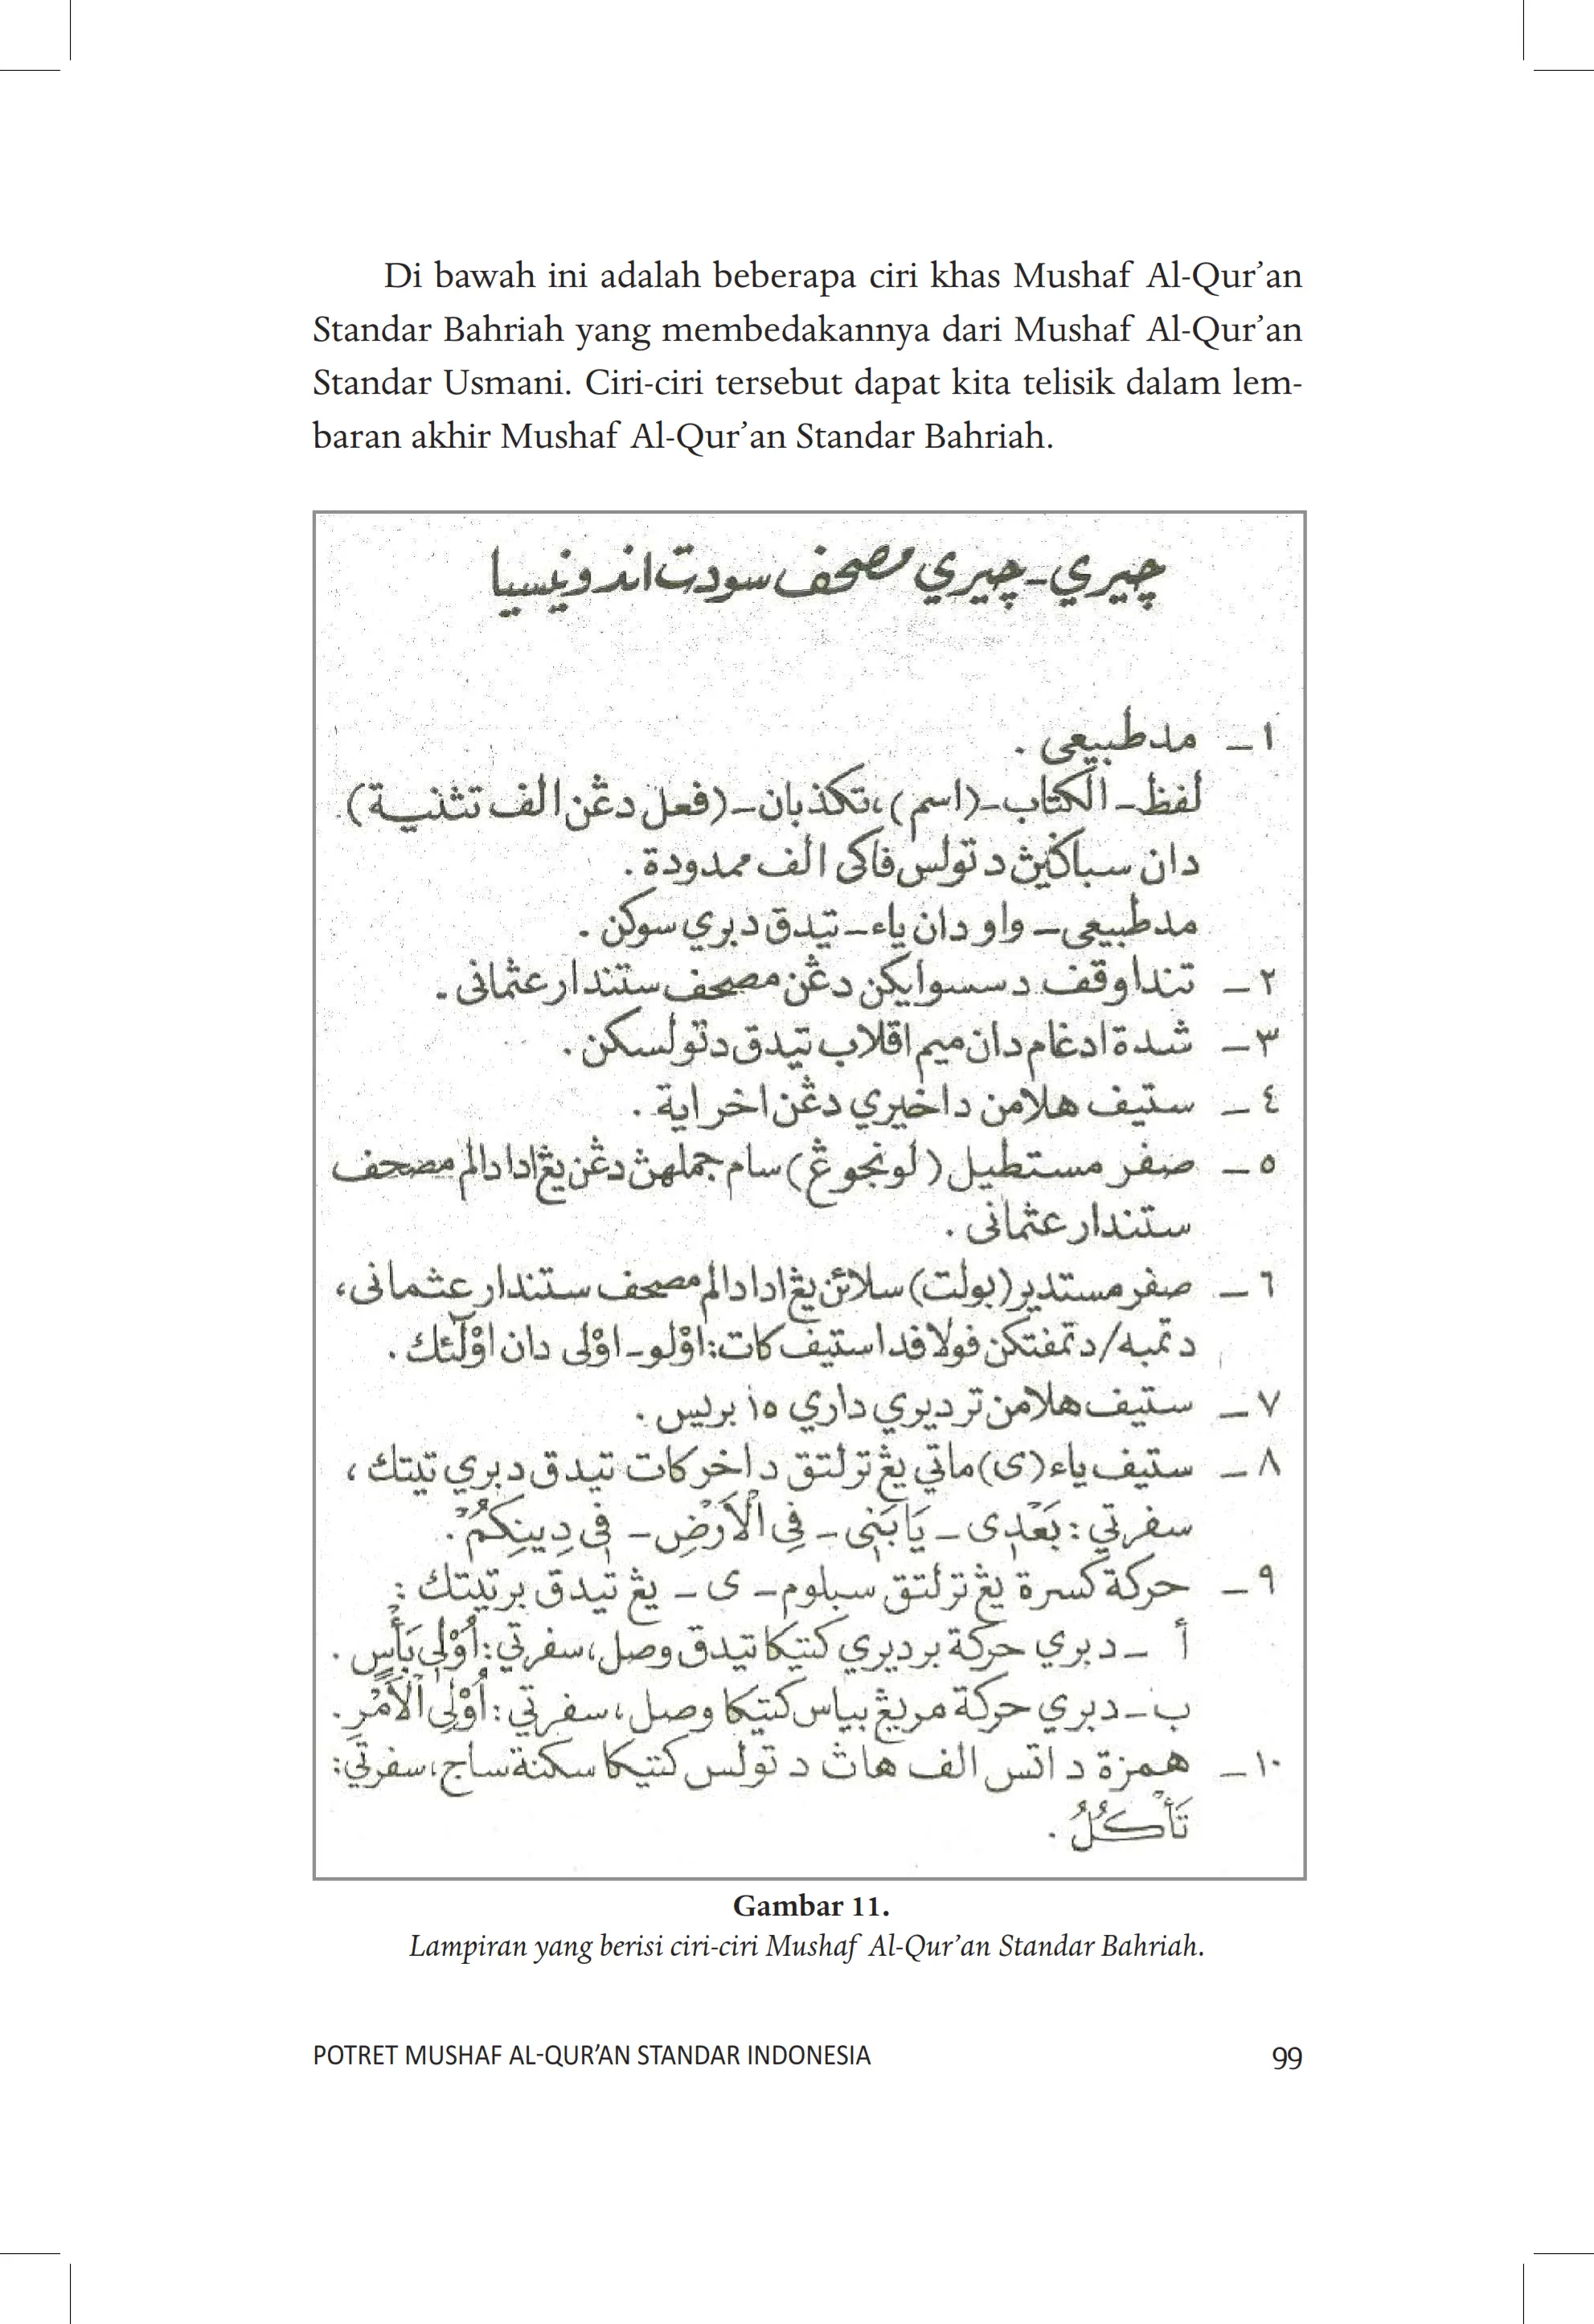 Di bawah ini adalah beberapa ciri khas Mushaf Al-Qur’an
Standar Bahriah yang membedakannya dari Mushaf Al-Qur’an
Standar Usmani. Ciri-ciri tersebut dapat kita telisik dalam lem-
baran akhir Mushaf Al-Qur’an Standar Bahriah.
چيري-چيري مصحف سودت اندونيسيا
١ـ مد طبيعى .
لفظ ـ الكتاب ـ (اسم)، تكذبان ـ (فعل دڠن الف تثنية).
دان سباݢيڽ د تولس فاكى الف ممدودة .
مد طبيعى ـ واو دان ياء ـ تيدق دبري سوكن .
٢ـ تندا وقف د سسوايكن دڠن مصحف ستندار عثمانى .
٣ـ شدة ادغام دان ميم اقلاب تيدق دتولسكن .
٤ـ ستيف هلامن داخيري دڠن اخر اية .
٥ـ صفر مستطيل (لونجوڠ) سام جملهڽ دڠن يڠ ادا دالم مصحف
ستندار عثمانى .
٦ـ صفر مستدير (بولت) سلائن يڠ ادا دالم مصحف ستندار عثمانى،
د تمبه/د تمفتكن فولا فدا ستيف كات: اوْلو ـ اوْلى دان اوْلٓئك .
٧ـ ستيف هلامن ترديري داري ١٥ بريس .
٨ـ ستيف ياء (ى) ماتي يڠ ترلتق د اخر كات تيدق دبري تيتك ،
سفرتي: بَعْدِى ـ يَابَنِى ـ فِى الْاَرْضِ ـ فِى دِينِكُمْ .
٩ـ حركة كسرة يڠ ترلتق سبلوم ـ ى ـ يڠ تيدق برتيتك :
أ ـ دبري حركة برديري كتيكا تيدق وصل، سفرتي: اُوْلِى بَأْسٍ .
ب ـ دبري حركة مريڠ بياس كتيكا وصل، سفرتي: اُوْلِى الْاَمْرِ .
١٠ـ همزة د اتس الف هاڽ د تولس كتيكا سكنة ساج، سفرتي:
تَأْكُلُ .
Gambar 11.
Lampiran yang berisi ciri-ciri Mushaf Al-Qur’an Standar Bahriah.
POTRET MUSHAF AL-QUR’AN STANDAR INDONESIA 99